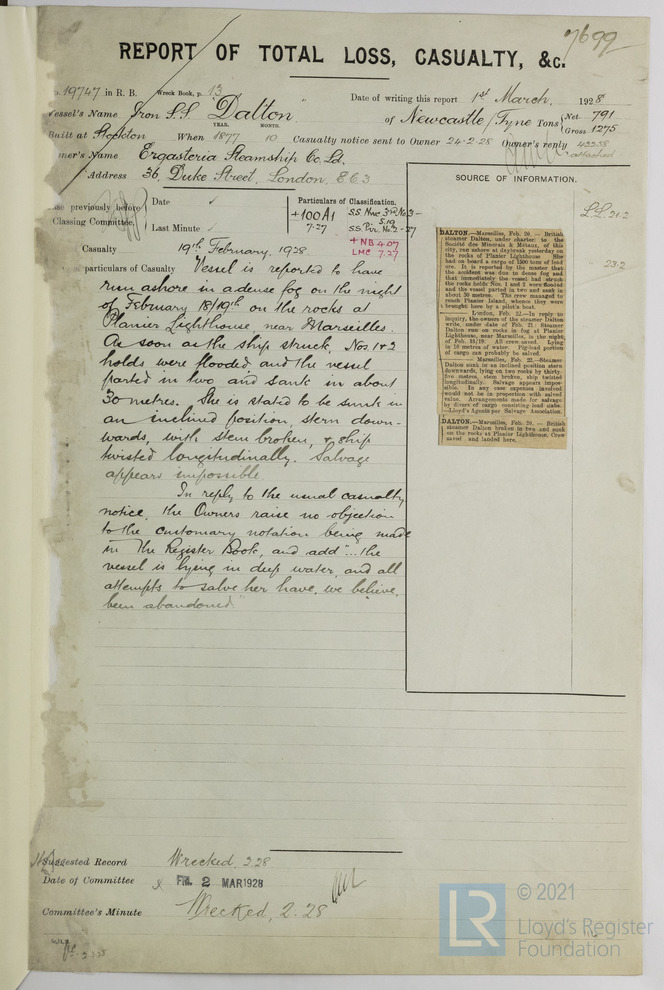 7699
REPORT OF TOTAL LOSS, CASUALTY, &c.
No. 19747 in R. B. Wreck Book, p. 13
Date of writing this report 1st March, 1928
Vessel's Name Iron S.S. "Dalton" of Newcastle/Tyne Tons { Net 791
Gross 1275
Built at Stockton When YEAR. 1877 MONTH. 10 Casualty notice sent to Owner 24-2-28 Owner's reply 43238
attached
Owner's Name Ergasteria Steamship Co. Ld.
Address 36 Duke Street, London, E.C.3
SOURCE OF INFORMATION.
previously before
Classing Committee.
Date
Last Minute
Particulars of Classification.
+100A1
7.27
5.19
+ NB 4.07
LMC 7.27
Casualty 19th February, 1928
particulars of Casualty Vessel is reported to have
run ashore in a dense fog on the night
of February 18/19th on the rocks at
Planier Lighthouse, near Marseilles.
As soon as the ship struck, Nos. 1 & 2
holds were flooded, and the vessel
parted in two and sank in about
30 metres. She is stated to be sunk in
an inclined position, stern down-
wards, with stem broken, & ship
twisted longitudinally. Salvage
appears impossible.
In reply to the usual casualty
notice, the Owners raise no objection
to the customary notation being made
in the Register Book, and add "...the
vessel is lying in deep water, and all
attempts to salve her have, we believe,
been abandoned."
L.L. 21.2
23.2
DALTON.—Marseilles, Feb. 20. — British
steamer Dalton, under charter to the
Société des Minerais & Métaux, of this
city, ran ashore at daybreak yesterday on
the rocks of Planier Lighthouse. She
had on board a cargo of 1500 tons of lead
ore. It is reported by the master that
the accident was due to dense fog and
that immediately the vessel had struck
the rocks holds Nos. 1 and 2 were flooded
and the vessel parted in two and sank in
about 30 metres. The crew managed to
reach Planier Island, whence they were
brought here by a pilot's boat.
— London, Feb. 22.—In reply to
inquiry, the owners of the steamer Dalton
write, under date of Feb. 21: Steamer
Dalton runs on rocks in fog at Planier
Lighthouse, near Marseilles, in the night
of Feb. 18/19. All crew saved. Lying
in 10 metres of water. Pig-lead portion
of cargo can probably be salved.
— Marseilles, Feb. 22.—Steamer
Dalton sunk in an inclined position stern
downwards, lying on two rocks by thirty-
five metres, stem broken, ship twisted
longitudinally. Salvage appears impos-
sible. In any case expenses involved
would not be in proportion with salved
value. Arrangements made for salvage
by divers of cargo consisting lead slabs.
—Lloyd's Agents per Salvage Association.
DALTON.—Marseilles, Feb. 20. — British
steamer Dalton broken in two and sunk
on the rocks at Planier Lighthouse. Crew
saved and landed here.
Suggested Record Wrecked, 2.28
Date of Committee FRI. 2 MAR 1928
Committee's Minute Wrecked, 2.28
LR
© 2021
Lloyd's Register
Foundation